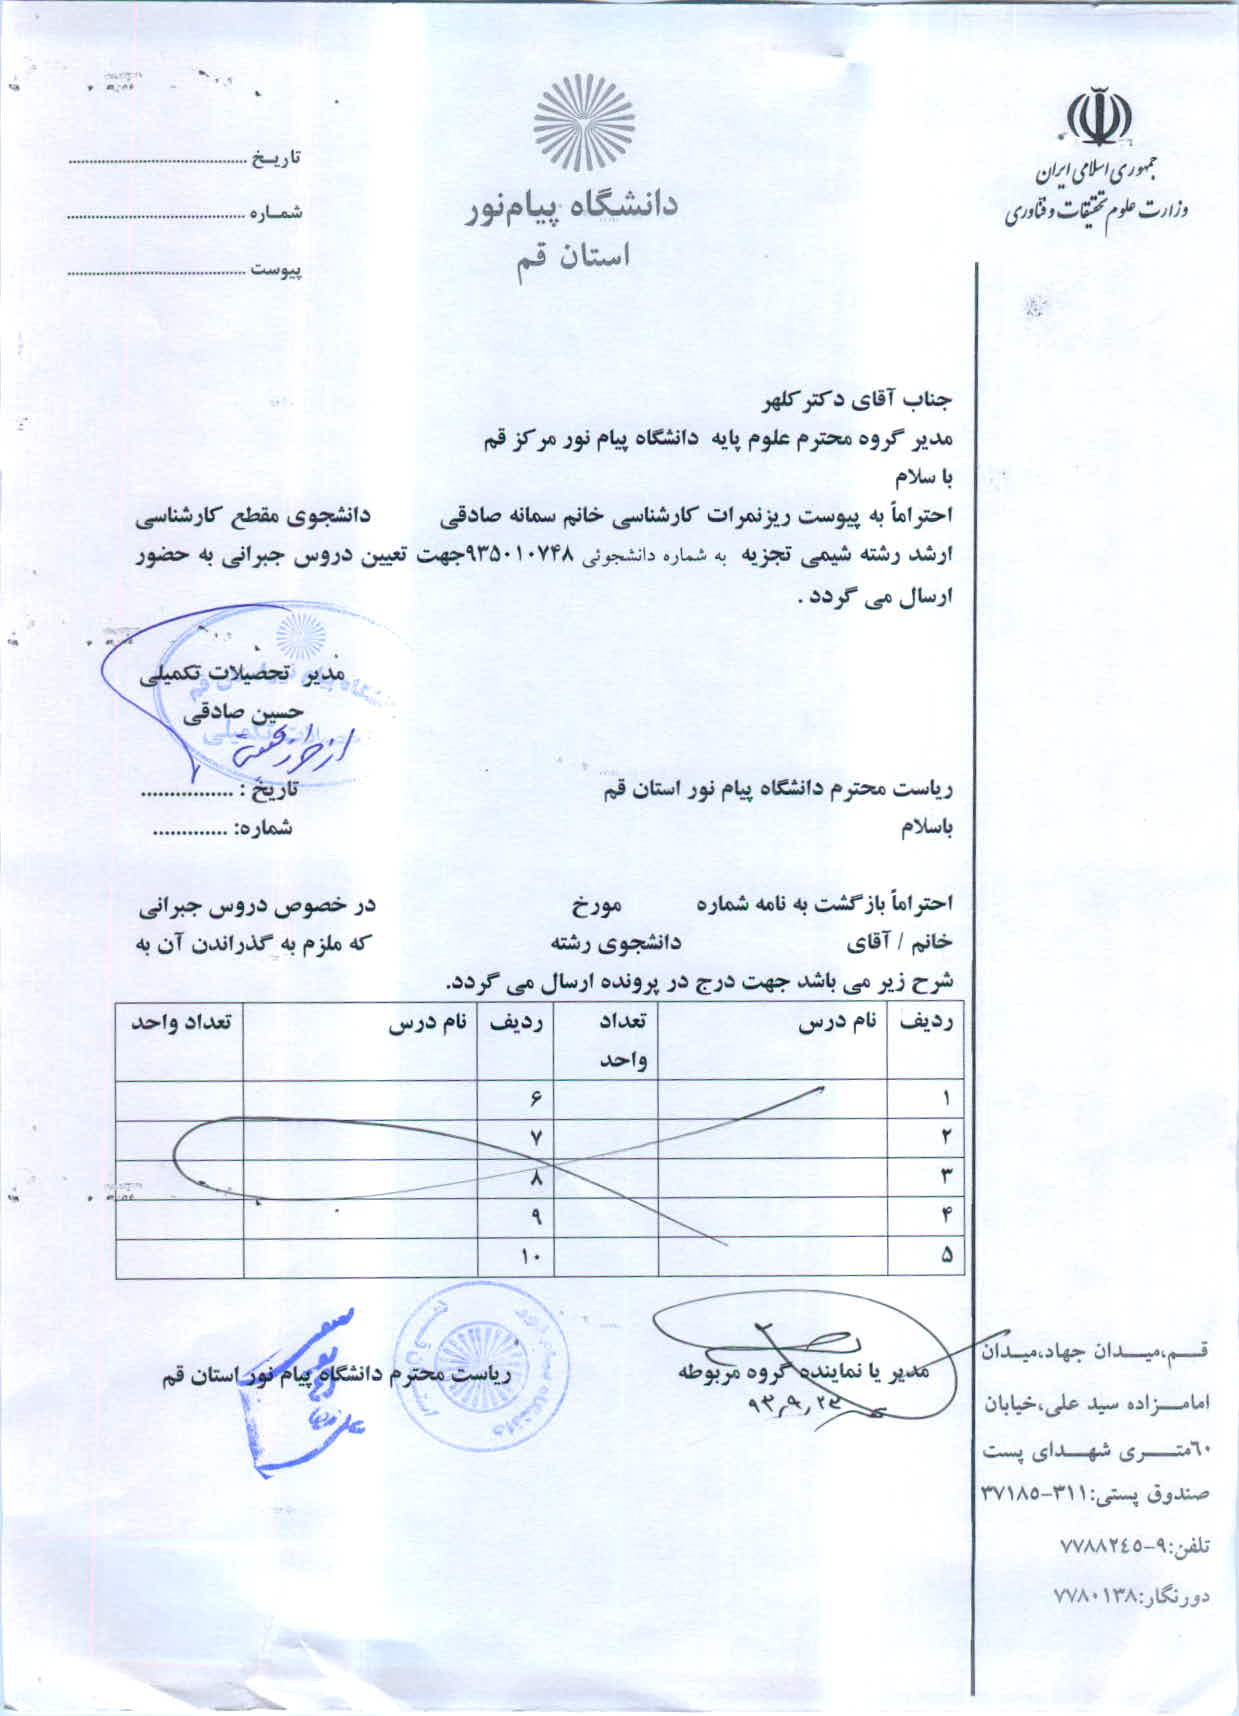 جمهوری اسلامی ایران
وزارت علوم تحقیقات و فناوری
دانشگاه پیام‌نور
استان قم
تاریـخ ..........................................
شمـاره ..........................................
پیوست ..........................................
جناب آقای دکتر کلهر
مدیر گروه محترم علوم پایه دانشگاه پیام نور مرکز قم
با سلام
احتراماً به پیوست ریزنمرات کارشناسی خانم سمانه صادقی دانشجوی مقطع کارشناسی
ارشد رشته شیمی تجزیه به شماره دانشجوئی ۹۳۵۰۱۰۷۴۸جهت تعیین دروس جبرانی به حضور
ارسال می گردد .
مدیر تحصیلات تکمیلی
حسین صادقی
ریاست محترم دانشگاه پیام نور استان قم تاریخ : ................
باسلام شماره: .............
احتراماً بازگشت به نامه شماره مورخ در خصوص دروس جبرانی
خانم / آقای دانشجوی رشته که ملزم به گذراندن آن به
شرح زیر می باشد جهت درج در پرونده ارسال می گردد.
ردیف نام درس تعداد واحد ردیف نام درس تعداد واحد
۱ ۶
۲ ۷
۳ ۸
۴ ۹
۵ ۱۰
مدیر یا نماینده گروه مربوطه ریاست محترم دانشگاه پیام نور استان قم
۹۳٫۹٫۲۳
قــم،میــدان جهاد،میـدان
امامــزاده سید علی،خیابان
٦٠متــری شهــدای پست
صندوق پستی:۳۱۱-۳۷۱۸٥
تلفن:۹-۷۷۸۸۲٤٥
دورنگار:۷۷۸۰۱۳۸